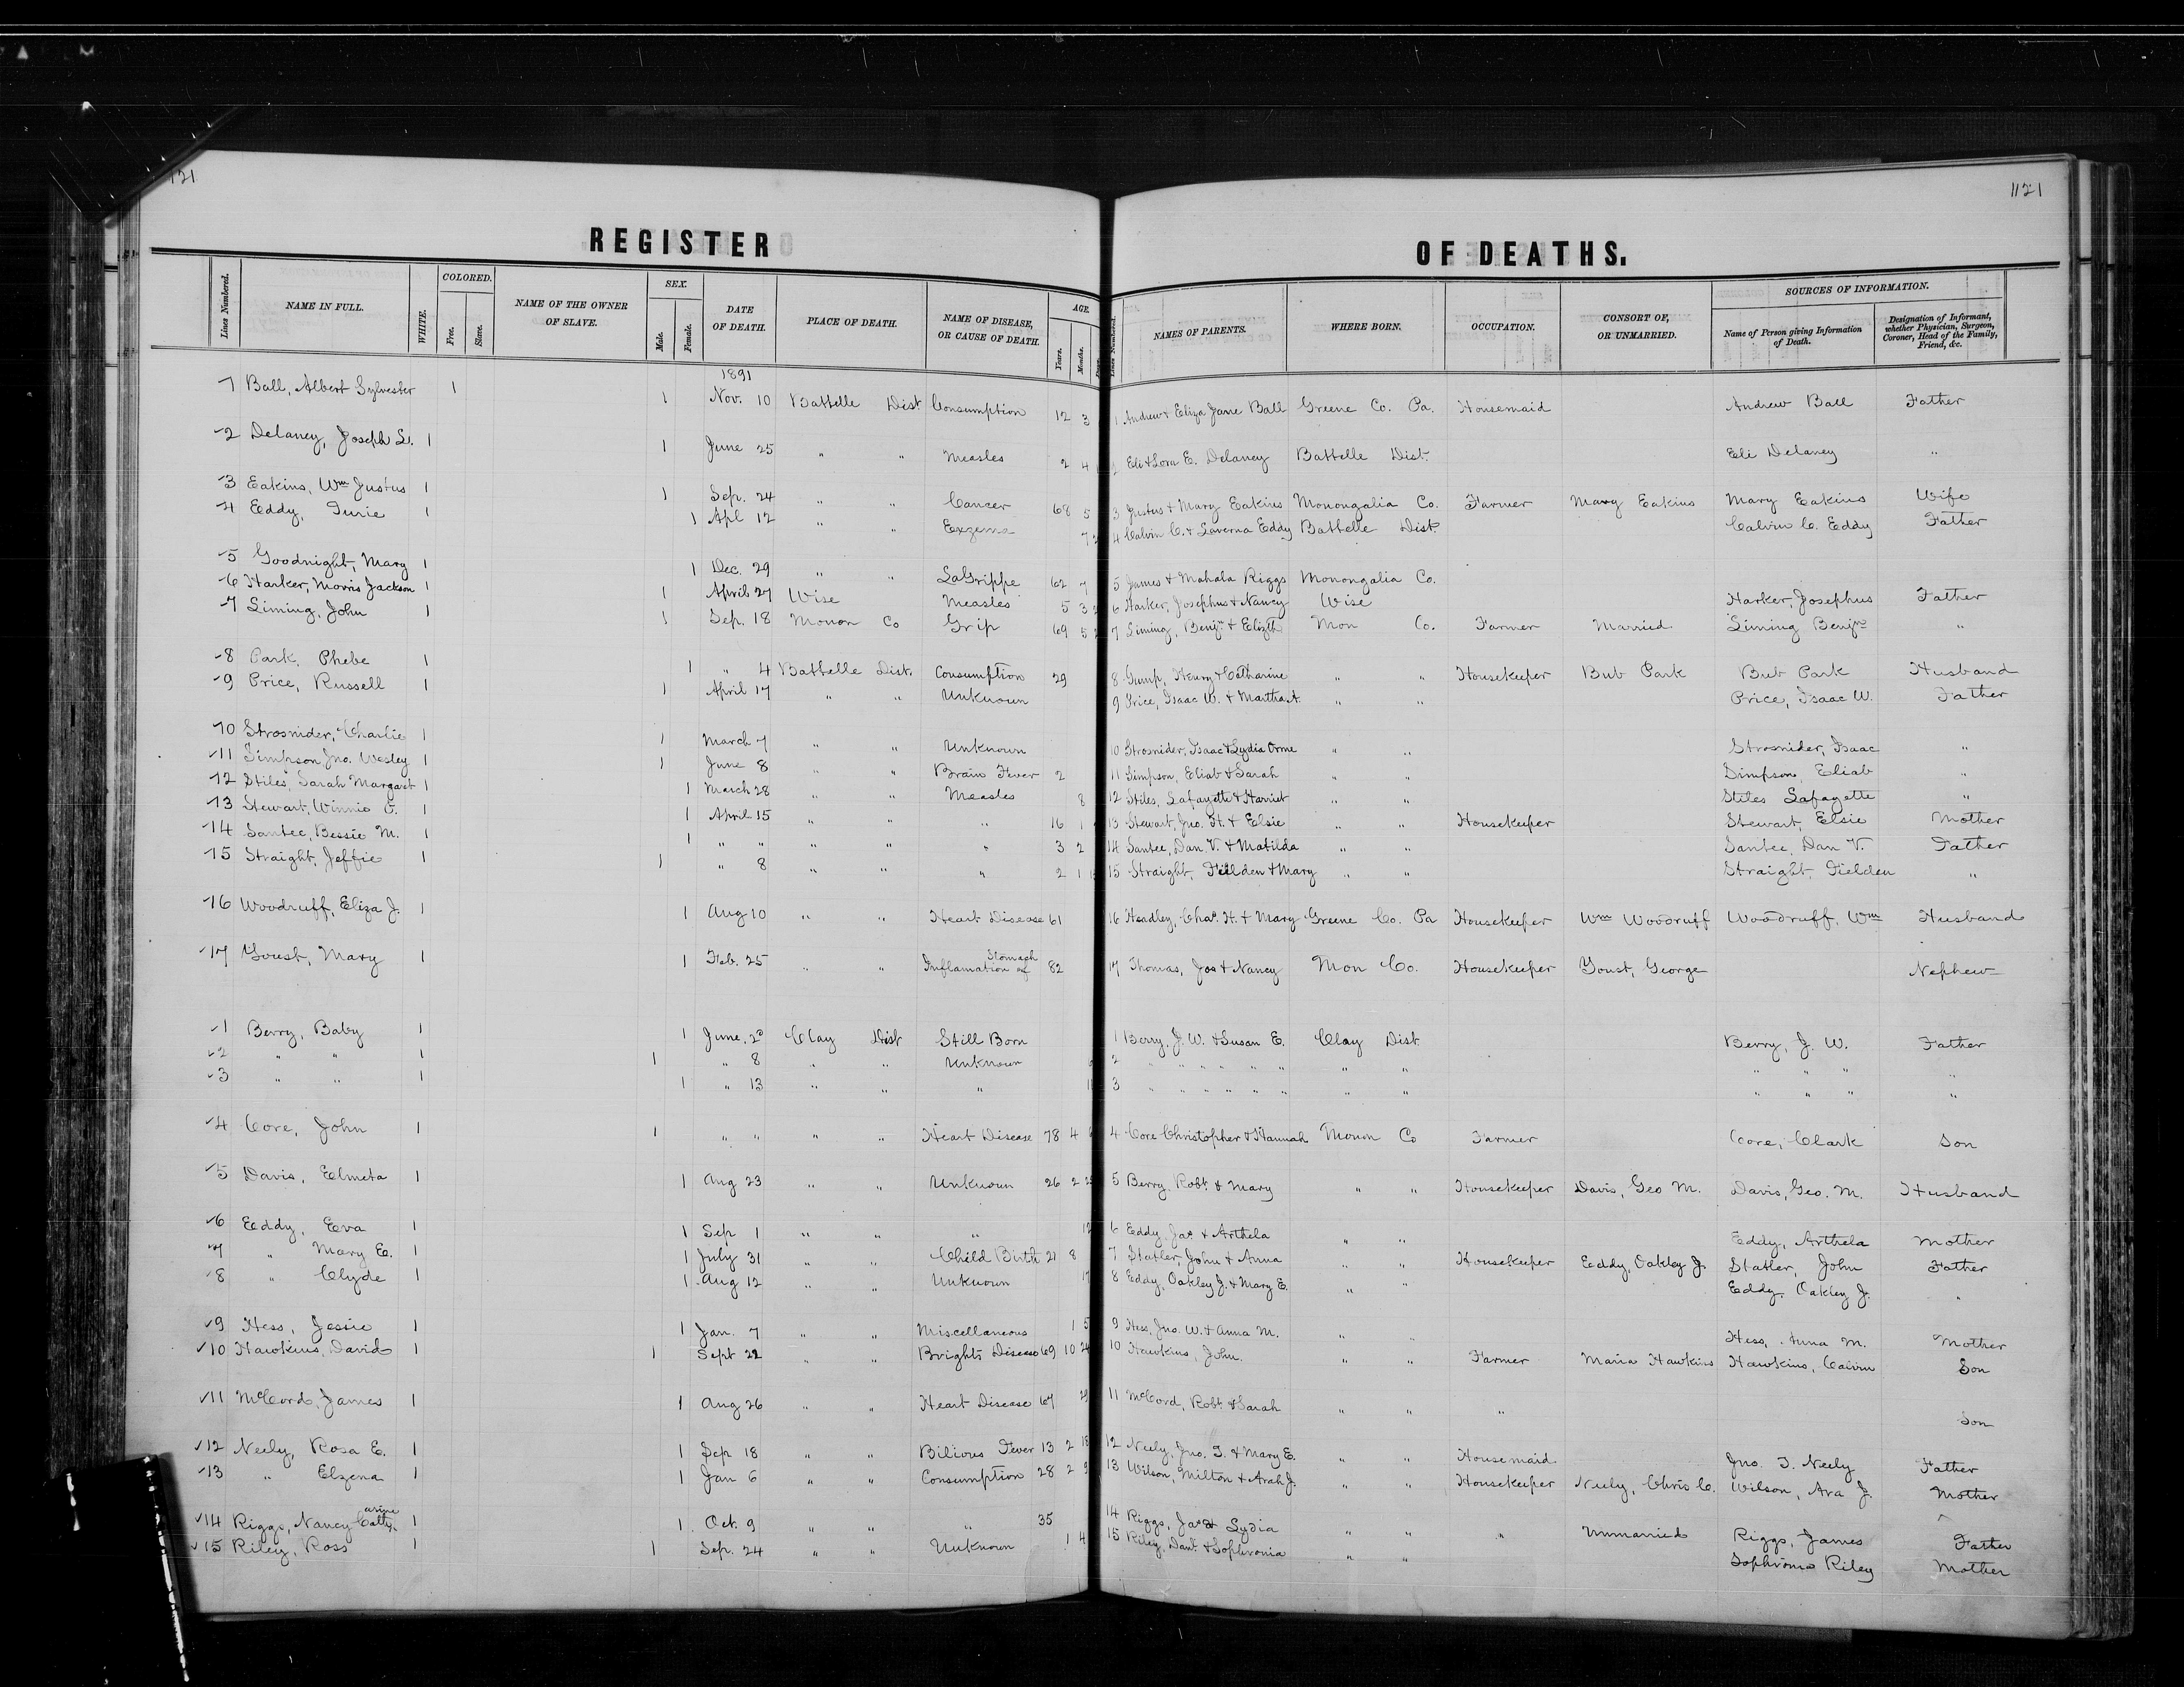 121
1121
REGISTER OF DEATHS.
Lines Numbered. NAME IN FULL. WHITE. COLORED. Free. Slave. NAME OF THE OWNER OF SLAVE. SEX. Male. Female. DATE OF DEATH. PLACE OF DEATH. NAME OF DISEASE, OR CAUSE OF DEATH. AGE. Years. Months. Lines Numbered. NAMES OF PARENTS. WHERE BORN. OCCUPATION. CONSORT OF, OR UNMARRIED. SOURCES OF INFORMATION. Name of Person giving Information of Death. Designation of Informant, whether Physician, Surgeon, Coroner, Head of the Family, Friend, &c.
1891
1 Ball, Albert Sylvester 1 1 Nov. 10 Battelle Dist Consumption 12 3 1 Andrew & Eliza Jane Ball Greene Co. Pa. Housemaid Andrew Ball Father
2 Delaney, Joseph L. 1 1 June 25 " " Measles 2 4 Eli & Lora E. Delaney Battelle Dist. Eli Delaney "
3 Eakins, Wm Justus 1 1 Sep. 24 " " Cancer 68 5 3 Justus & Mary Eakins Monongalia Co. Farmer Mary Eakins Mary Eakins Wife
4 Eddy, Turie 1 1 Apl 12 " " Exzema 7 4 Calvin C. & Laverna Eddy Battelle Dist. Calvin C. Eddy Father
5 Goodnight, Mary 1 1 Dec. 29 " " LaGrippe 62 7 5 James & Mahala Riggs Monongalia Co.
6 Harker, Morris Jackson 1 1 April 27 Wise Measles 5 3 6 Harker, Josephus & Nancy Wise Harker, Josephus Father
7 Liming, John 1 1 Sep. 18 Monon Co Grip 69 5 7 Liming, Benjn & Elizth Mon Co. Farmer Married Liming Benjn "
8 Park, Phebe 1 1 " 4 Battelle Dist. Consumption 29 8 Gump, Henry & Catharine " " Housekeeper Bub Park Bub Park Husband
9 Price, Russell 1 1 April 17 " " Unknown 9 Price, Isaac W. & Martha A. " " Price, Isaac W. Father
10 Strosnider, Charlie 1 1 March 7 " " Unknown 10 Strosnider, Isaac & Lydia Orme " " Strosnider, Isaac "
11 Simpson, Jno. Wesley 1 1 June 8 " " Brain Fever 2 11 Simpson, Eliab & Sarah " " Simpson, Eliab "
12 Stiles, Sarah Margaret 1 1 March 28 " " Measles 8 12 Stiles, Lafayette & Harriet " " Stiles Lafayette "
13 Stewart, Winnie O. 1 1 April 15 " " " 16 1 13 Stewart, Jno. H. & Elsie " " Housekeeper Stewart, Elsie Mother
14 Santee, Bessie M. 1 1 " " " " " 3 2 14 Santee, Dan. V. & Matilda " " Santee, Dan V. Father
15 Straight, Jeffie 1 1 " 8 " " " 2 1 15 Straight, Fielden & Mary " " Straight, Fielden "
16 Woodruff, Eliza J. 1 1 Aug 10 " " Heart Disease 61 16 Headley, Chas. H. & Mary Greene Co. Pa Housekeeper Wm Woodruff Woodruff, Wm Husband
17 Youst, Mary 1 1 Feb. 25 " " Inflamation of Stomach 82 17 Thomas, Jos & Nancy Mon Co. Housekeeper Youst, George Nephew
1 Berry, Baby 1 1 June. 2 Clay Dist Still Born 1 Berry, J. W. & Susan E. Clay Dist Berry, J. W. Father
2 " " 1 1 " 8 " " Unknown 6 2 " " " " " " " " " " " "
3 " " 1 1 " 13 " " " 11 3 " " " " " " " " " " " "
4 Core, John 1 1 " " " " Heart Disease 78 4 6 4 Core Christopher & Hannah Monon Co Farmer Core, Clark Son
5 Davis, Elmeta 1 1 Aug 23 " " Unknown 26 2 5 Berry, Robt. & Mary " " Housekeeper Davis, Geo M. Davis, Geo. M. Husband
6 Eddy, Eva 1 1 Sep 1 " " " 12 6 Eddy, Jas. & Arthela " " Eddy, Arthela Mother
7 " Mary E. 1 1 July 31 " " Child Birth 21 8 7 Statler, John & Anna " " Housekeeper Eddy, Oakley J. Statler, John Father
8 " Clyde 1 1 Aug 12 " " Unknown 17 8 Eddy, Oakley J. & Mary E. " " Eddy, Oakley J. "
9 Hess, Jessie 1 1 Jan. 7 " " Miscellaneous 1 5 9 Hess, Jno. W. & Anna M. " " Hess, Anna M. Mother
10 Hawkins, David 1 1 Sept 22 " " Brights Disease 69 10 24 10 Hawkins, John. " " Farmer Maria Hawkins Hawkins, Calvin Son
11 McCord, James 1 1 Aug 26 " " Heart Disease 67 29 11 McCord, Robt. & Sarah " " " Son
12 Neely, Rosa E. 1 1 Sep 18 " " Bilious Fever 13 2 18 12 Neely, Jno. T. & Mary E. " " Housemaid Jno. T. Neely Father
13 " Elzena 1 1 Jan 6 " " Consumption 28 2 9 13 Wilson, Milton & Arah J. " " Housekeeper Neely, Chris C. Wilson, Ara J. Mother
14 Riggs, Nancy Catharine 1 1 Oct. 9 " " " 35 14 Riggs, Jas & Lydia " " " Unmarried Riggs, James Father
15 Riley, Ross 1 1 Sep. 24 " " Unknown 1 4 15 Riley, Danl. & Sophronia " " Sophronia Riley Mother